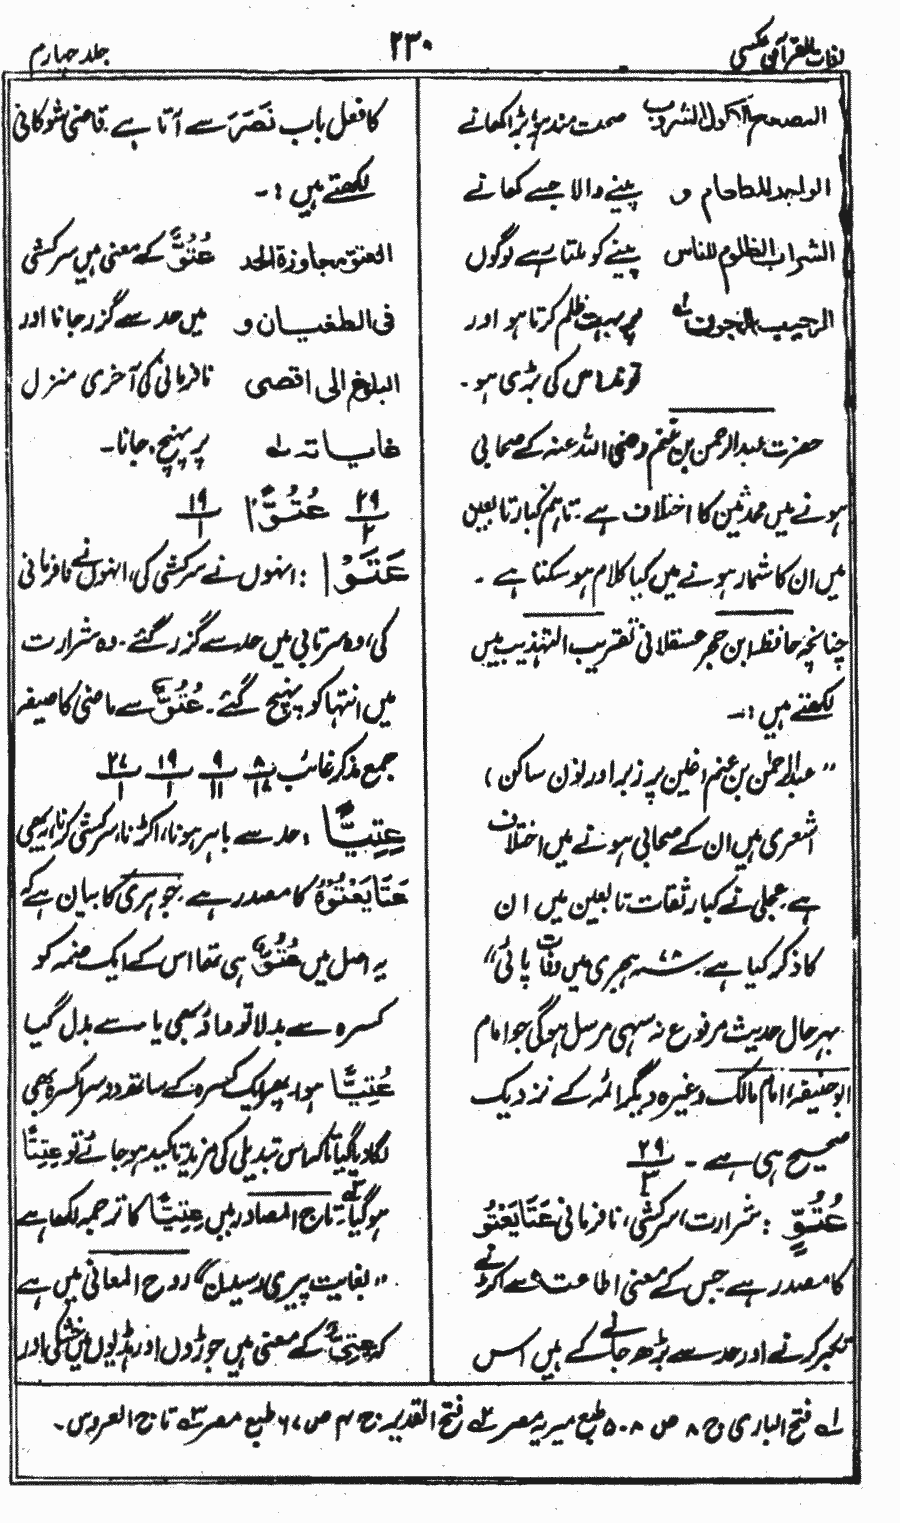 لغات القرآن عکسی
۲۳۰
جلد چہارم
المصحح الاکول الشروب صحت مند ہو بڑا کھانے
الواجد للطعام و پینے والا جسے کھانے
الشراب الظلوم للناس پینے کو ملتا ہے لوگوں
الرحیب الجوف لہ پر بہت ظلم کرتا ہو اور
توند اس کی بڑی ہو۔
حضرت عبدالرحمن بن غنم رضی اللہ عنہ کے صحابی
ہونے میں محدثین کا اختلاف ہے۔ تاہم کبار تابعین
میں ان کا شمار ہونے میں کیا کلام ہو سکتا ہے۔
چنانچہ حافظ ابن حجر عسقلانی تقریب التہذیب میں
لکھتے ہیں :۔
”عبدالرحمٰن بن غنم اغلین پر زبر اور نون ساکن ،
اشعری میں ان کے صحابی ہونے میں اختلاف
ہے۔ عجلی نے کبار ثقات تابعین میں ان
کا ذکر کیا ہے۔ ۷۸سنہ ہجری میں وفات پائی“
بہرحال حدیث مرفوع نہ سہی مرسل ہوگی جو امام
ابو حنیفہ، امام مالک وغیرہ دیگر ائمہ کے نزدیک
صحیح ہی ہے ۔ ۲۹/۳
عُتُوٍّ : شرارت، سرکشی، نافرمانی عَتَا یَعْتُو
کا مصدر ہے جس کے معنی اطاعت سے اکڑنے
تکبر کرنے اور حد سے بڑھ جانے کے ہیں اس
کا فعل باب نَصَرَ سے آتا ہے۔ قاضی شوکانی
لکھتے ہیں :۔
العتو مجاوزة الحد عُتُوٌّ کے معنی ہیں سرکشی
فی الطغیان و میں حد سے گزر جانا اور
البلوغ الی اقصی نافرمانی کی آخری منزل
غایاتہ لہ پر پہنچ جانا۔
۲۹/۲ عُتُوًّا ۱۹/۱
عَتَوْا : انہوں نے سرکشی کی، انہوں نے نافرمانی
کی، وہ سرتابی میں حد سے گزر گئے۔ وہ شرارت
میں انتہا کو پہنچ گئے۔ عُتُوٌّ سے ماضی کا صیغہ
جمع مذکر غائب ۸/۱۷ ۹/۱۱ ۱۹/۱ ۲۷/۱
عِتِیًّا : حد سے باہر ہونا، اکڑنا، سرکشی کرنا، یہ بھی
عَتَا یَعْتُوْ کا مصدر ہے۔ جوہری کا بیان ہے کہ
یہ اصل میں عُتُوٌّ ہی تھا اس کے ایک ضمہ کو
کسرہ سے بدلا تو واؤ بھی یا سے بدل گیا
عُتِیًّا ہوا۔ پھر ایک کسرہ کے ساتھ دوسرا کسرہ بھی
لگا دیا گیا تاکہ اس تبدیلی کی مزید تاکید ہو جائے تو عِتِیًّا
ہوگیا۔ تاج المصادر میں عِتِیًّا کا ترجمہ لکھا ہے
”بغایت پیری رسیدن“ روح المعانی میں ہے
کہ عِتِیٌّ کے معنی ہیں جوڑوں اور ہڈیوں میں خشکی اور
لہ فتح الباری ج ۸ ص ۵۰۸ طبع میریہ مصر ۲ہ فتح القدیر ج ۴ ص ۶۷ طبع مصر ۳ہ تاج العروس۔